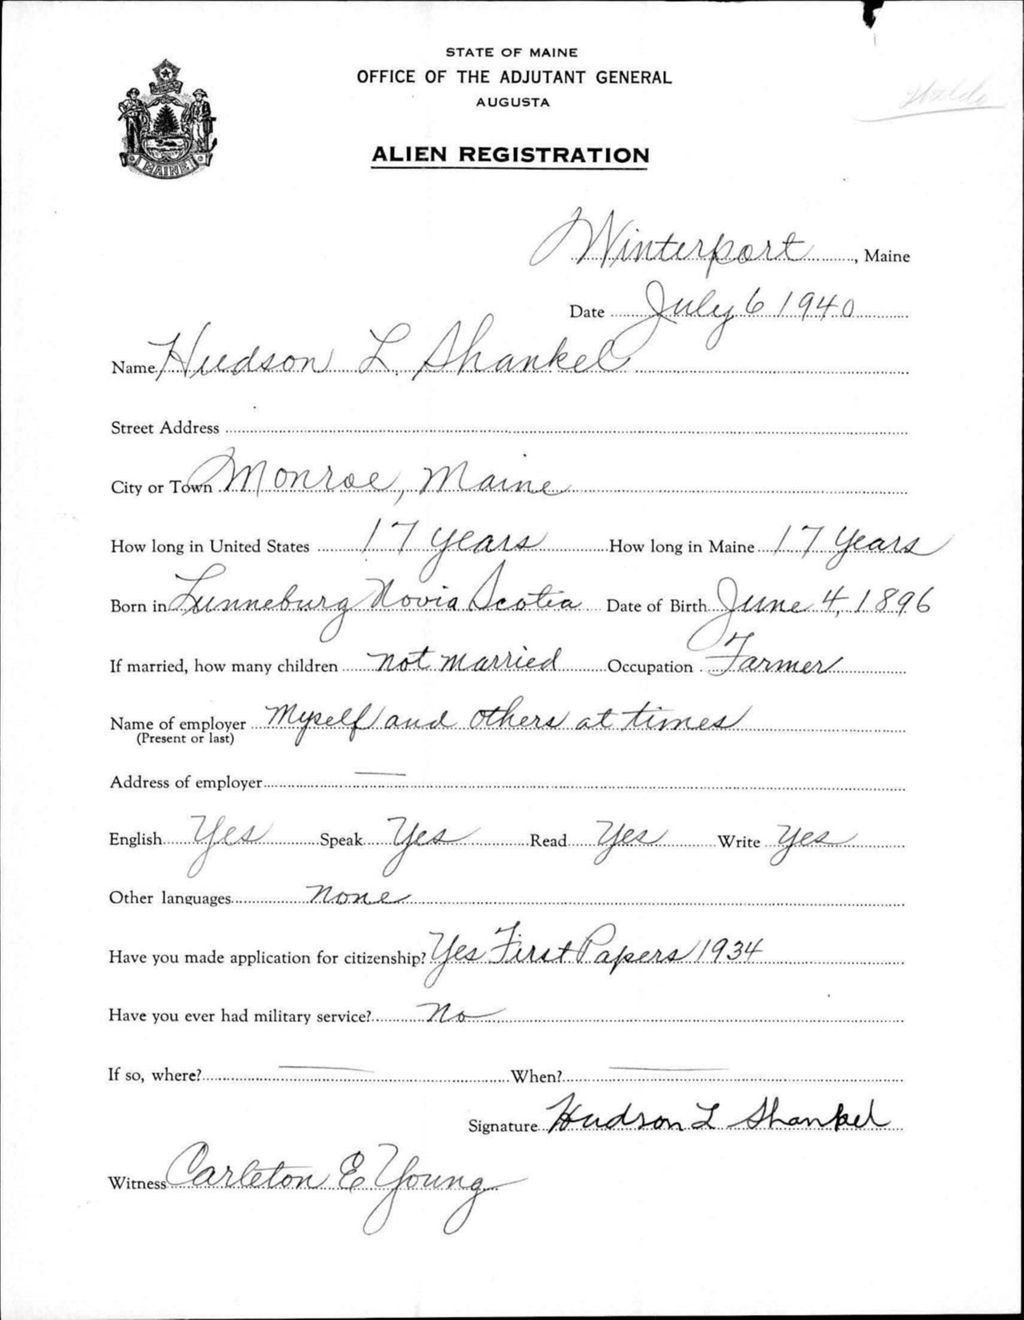 STATE OF MAINE
OFFICE OF THE ADJUTANT GENERAL
AUGUSTA
Waldo
ALIEN REGISTRATION
MAINE
Winterport, Maine
Date July 6 1940
Name Hudson L. Shankel
Street Address
City or Town Monroe, Maine
How long in United States 17 years How long in Maine 17 Years
Born in Lunneburg Novia Scotia Date of Birth June 4, 1896
If married, how many children not married Occupation Farmer
Name of employer Myself and others at times
(Present or last)
Address of employer —
English Yes Speak Yes Read Yes Write Yes
Other languages none
Have you made application for citizenship? Yes First Papers 1934
Have you ever had military service? No
If so, where? — When? —
Signature Hudson L Shankel
Witness Carleton E Young